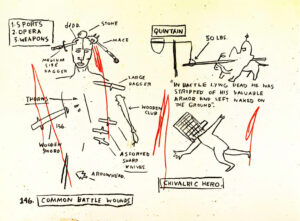 1. SPORTS
2. OPERA
3. WEAPONS
STONE
MACE
MEDIUM
SIZE
DAGGER
LARGE
DAGGER
THORNS
WOODEN
CLUB
146.
WOODEN
SWORD
ASSORTED
SHARP
KNIVES
ARROWHEAD.
146. COMMON BATTLE WOUNDS
QUINTAIN
50 LBS.
"IN BATTLE LYING DEAD HE WAS
STRIPPED OF HIS VALUABLE
ARMOR AND LEFT NAKED ON
THE GROUND".
CHIVALRIC HERO.